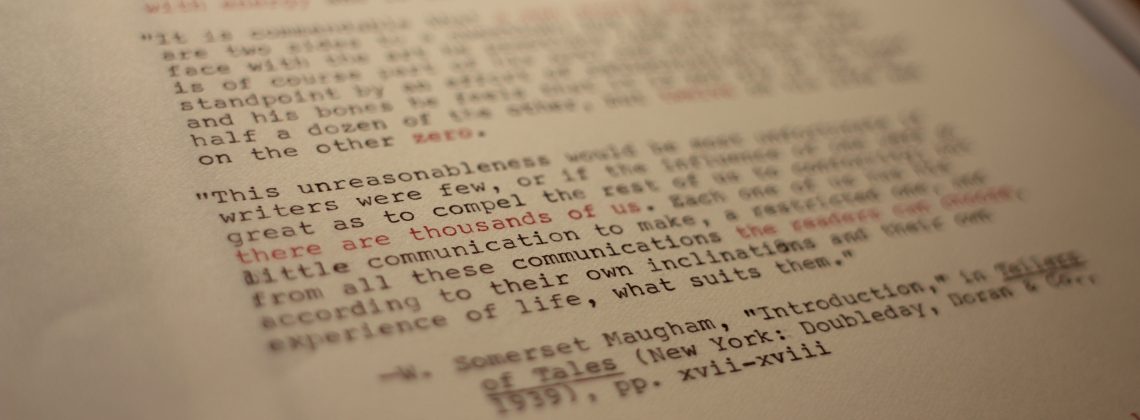 with energy
"It is
are two sides to a
face with the
is of course part of the
standpoint by an effort of
and his bones he feels that
half a dozen of the other, but
on the other zero.
"This unreasonableness would be most unfortunate if
writers were few, or if the influence of one were so
great as to compel the rest of us to
there are thousands of us. Each one of us has his
little communication to make, a restricted one, and
from all these communications the readers can choose,
according to their own inclinations and their own
experience of life, what suits them."
—W. Somerset Maugham, "Introduction," in Tellers
of Tales (New York: Doubleday, Doran & Co.,
1939), pp. xvii-xviii